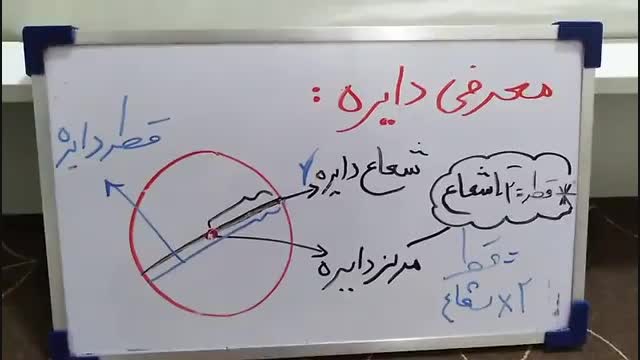 معرفی دایره :
قطر دایره
شعاع دایره
* قطر = ۲ تا شعاع
مرکز دایره
= قطر
۲ × شعاع